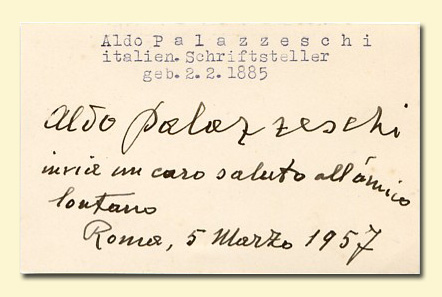 Aldo Palazzeschi
italien. Schriftsteller
geb. 2. 2. 1885
Aldo Palazzeschi
invia un caro saluto all'amico
lontano
Roma, 5 Marzo 1957